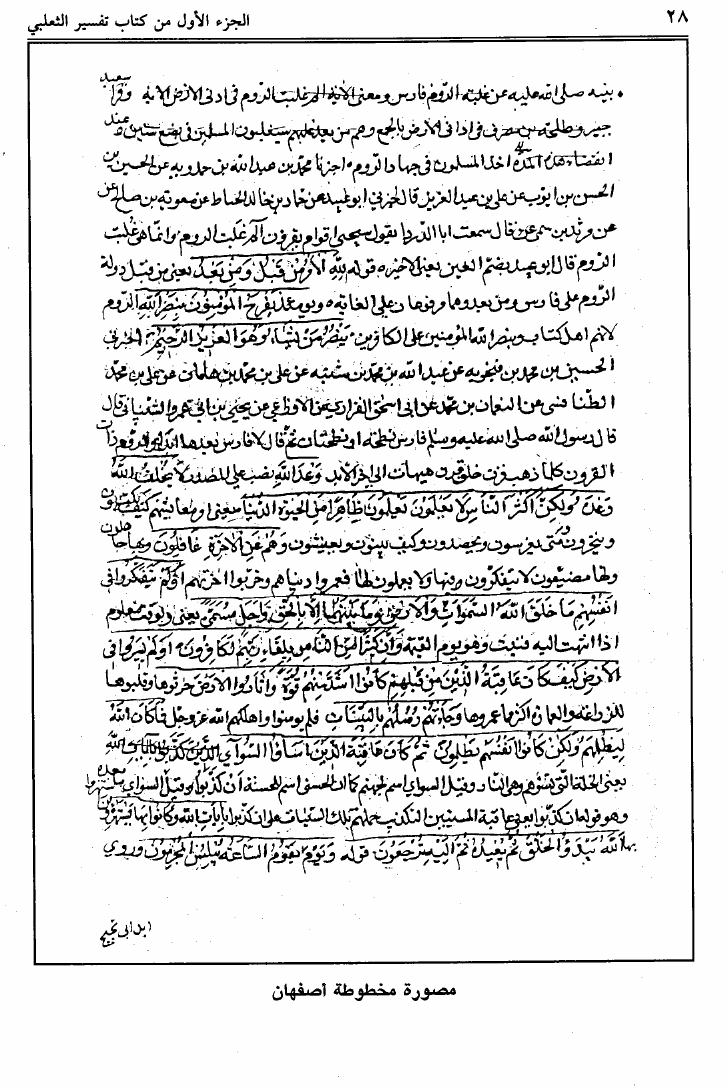 ٢٨ الجزء الأول من كتاب تفسير الثعلبي
نبيه صلى الله عليه عن غلبة الروم فارس ومعنى الاية الم غلبت الروم في ادنى الارض الاية وقرا سعيد
جبير وطلحة بن مصرف في اداني الارض بالجمع وهم من بعد غلبهم سيغلبون المسلمين في بضع سنين عند
انقضاء هذه المدة اخذ المسلمون في جهاد الروم اخبرنا محمد بن عبد الله بن حمدويه عن الحسين بن
الحسن بن ايوب عن علي بن عبد العزيز قال اخبرني ابو عبيد عن حماد بن خالد الخياط عن معوية بن صالح
عن مرثد بن سمي قال سمعت ابا الدرداء يقول سيجي اقوام يقرون الم غلبت الروم وانما هي غلبت
الروم قال ابو عبيد بضم الغين يعني الاخيرة قوله لله الامر من قبل ومن بعد يعني من قبل دولة
الروم على فارس ومن بعد وهما مرفوعان على الغاية ويومئذ يفرح المؤمنون بنصر الله الروم
لانهم اهل كتاب وبنصر الله المؤمنين على الكافرين ينصر من يشاء وهو العزيز الرحيم اخبرني
الحسين بن محمد بن فنجويه عن عبد الله بن محمد بن شنبه عن علي بن محمد بن هامان عن علي بن محمد
الطنافسي عن النعمان بن محمد عن ابي اسحق الفزاري عن الاوزاعي عن يحيى بن ابي عمرو الشيباني قال
قال رسول الله صلى الله عليه وسلم فارس نطحة او نطحتان ثم قال لا فارس بعدها ابدا والروم ذات
القرون كلما ذهب قرن خلف قرن هيهات الى اخر الابد وعد الله نصب على المصدر لا يخلف الله
وعده ولكن اكثر الناس لا يعلمون يعلمون ظاهرا من الحيوة الدنيا يعني امر معايشهم كيف يكتسبون
ويتجرون ومتى يغرسون ويحصدون وكيف يبنون ويعيشون وهم عن الاخرة هم غافلون وبها جاهلون
ولها مضيعون لا يتفكرون فيها ولا يعملون لها فعمروا دنياهم وخربوا اخرتهم اولم يتفكروا في
انفسهم ما خلق الله السموات والارض وما بينهما الا بالحق واجل مسمى يعني لوقت معلوم
اذا انتهت اليه فنيت وهو يوم القيمة وان كثيرا من الناس بلقاء ربهم لكافرون اولم يسيروا في
الارض كيف كان عاقبة الذين من قبلهم كانوا اشد منهم قوة واثاروا الارض حرثوها وقلبوها
للزراعة والعمارة اكثر مما عمروها وجاءتهم رسلهم بالبينات فلم يومنوا واهلكهم الله عز وجل فما كان الله
ليظلمهم ولكن كانوا انفسهم يظلمون ثم كان عاقبة الذين اساؤا السوآى ان كذبوا بايات الله
يعني الخلة التي تسوءهم وهي النار وقيل السوآى اسم لجهنم كما ان الحسنى اسم للجنة ان كذبوا وقيل السوآى ما بعده
وهو قوله ان كذبوا يعني عاقبة المسيئين التكذيب حملهم تلك السيئات على ان كذبوا بايات الله وكانوا بها يستهزؤن
الله يبدؤا الخلق ثم يعيده ثم اليه ترجعون قوله ويوم تقوم الساعة يبلس المجرمون وروي
ابن ابي نجيح
مصورة مخطوطة أصفهان